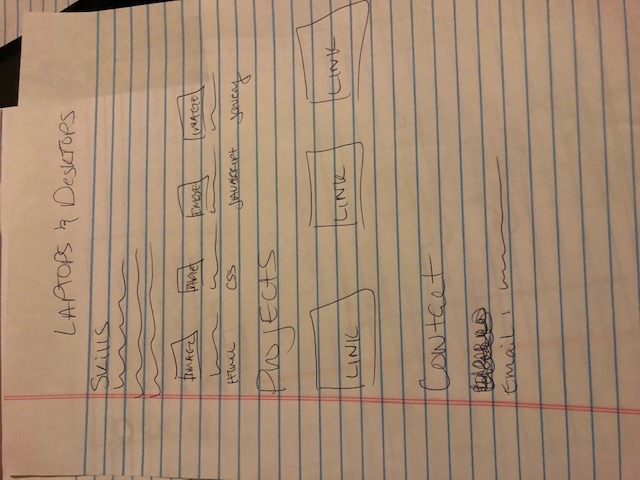 LAPTOPS & DESKTOPS
Skills
IMAGE IMAGE IMAGE IMAGE
HTML CSS JAVASCRIPT JQUERY
PROJECTS
LINK LINK LINK
Contact
Email: